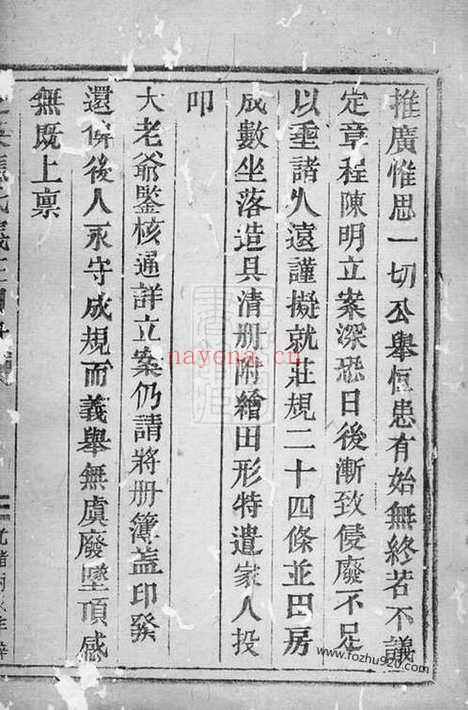 推廣惟思一切公舉恒患有始無終若不議
定章程陳明立案深恐日後漸致侵廢不足
以垂諸久遠謹擬就莊規二十四條並田房
成數坐落造具清册附繪田形特遣家人投
叩
大老爺鑒核通詳立案仍請將册簿蓋印發
還俾後人永守成規而義舉無虞廢墜頂感
無既上禀
nayona.cn
www.fozhu920.com